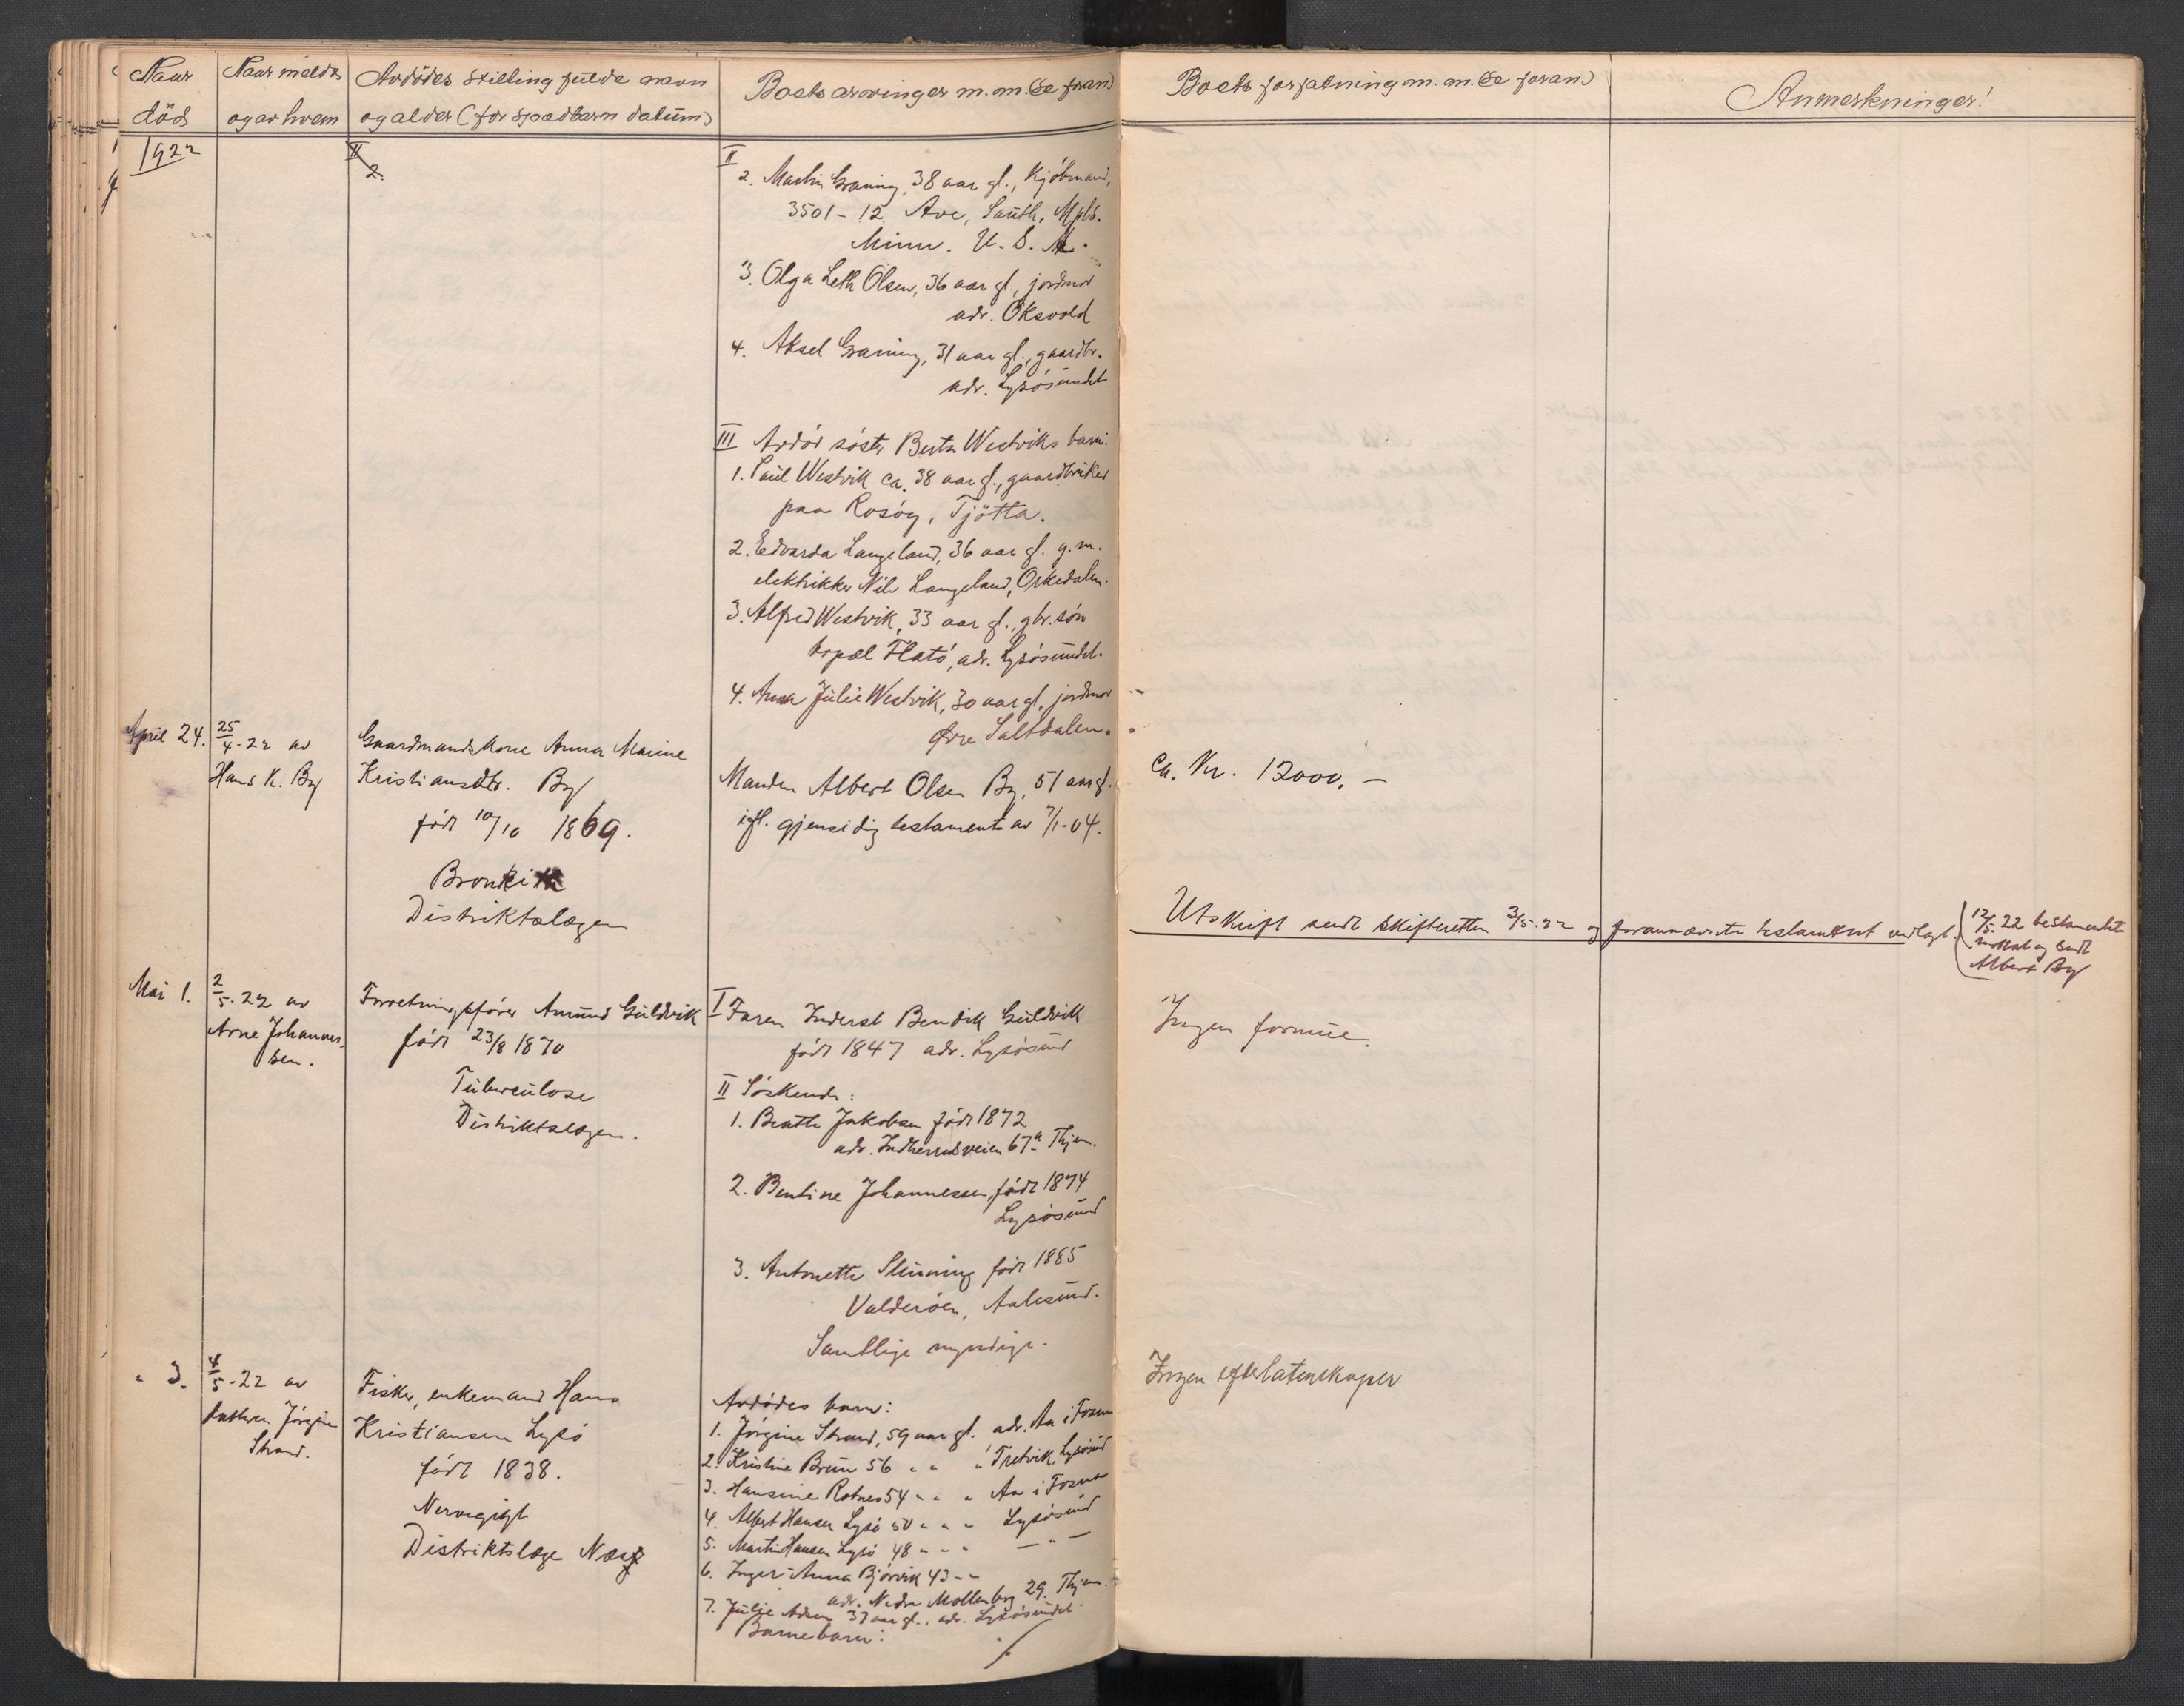 Naar död
Naar meldt og av hvem
Avdödes stilling fulde navn og alder (for spædbarn datum)
Boets arvinger m.m. (Se foran)
Boets forfatning m.m. (Se foran)
Anmerkninger!
1922
II
2.
II
2. Martin Graning, 38 aar gl., Kjöbmand,
3501 - 12 Ave, South, Mpls.
Minn. U. S. A.
3. Olga Leth Olsen, 36 aar gl., jordmor
adr. Oksvold
4. Aksel Graning, 31 aar gl., gaardbr.
adr. Lysösundet
III Avdöd söster Berta Westviks barn:
1. Paul Westvik ca. 38 aar gl., gaardbruker
paa Rosöy, Tjötta.
2. Edvarda Langeland, 36 aar gl. g.m.
elektriker Nils Langeland, Orkedalen.
3. Alfred Westvik, 33 aar gl., gbr. sön
bopæl Flatö, adr. Lysösundet.
4. Anna Julie Westvik, 30 aar gl., jordmor
Øvre Saltdalen.
April 24.
25/4-22 av
Hans K. By
Gaardmandskone Anna Marine
Kristiansdtr. By
född 10/10 1869.
Bronkit
Distriktslægen
Manden Albert Olsen By, 51 aar gl.
ifl. gjensidig testament av 7/1-04.
Ca. Kr. 12000,-
Utskrift sendt skifteretten 3/5-22 og forannævnte testament vedlagt.
12/5-22 testamentet
mottat og sendt
Albert By
Mai 1.
2/5-22 av
Arne Johannes-
sen.
Forretningsförer Amund Guldvik
född 23/8 1870
Tuberculose
Distriktslægen.
I Faren Inderst Bendik Guldvik
född 1847 adr. Lysösund
II Söskende:
1. Beathe Jakobsen född 1872
adr. Indherredsveien 67a Thjem.
2. Bentine Johannessen, född 1874
Lysösund
3. Antonette Slinning född 1885
Valderöen, Aalesund.
Samtlige myndige.
Ingen formue.
" 3.
4/5-22 av
datteren Jörgine
Strand.
Fisker, enkemand Hans
Kristiansen Lysö
född 1838.
Nervegigt
Distriktslæge Næss
Avdödes barn:
1. Jörgine Strand, 59 aar gl. adr. Aa i Fosen
2. Kristine Bruun 56 " " " Tretvik, Lysösund
3. Hansine Rotnes 54 " " " Aa i Fosen
4. Albert Hansen Lysö 50 " " " Lysösund
5. Martin Hansen Lysö 48 " " " — " —
6. Inger Anna Bjørvik 43 " "
adr. Nedre Mollenberg 29. Thjem.
7. Julie Adsen 37 aar gl., adr. Lysösundet.
Barnebarn:
./.
Ingen efterlatenskaper